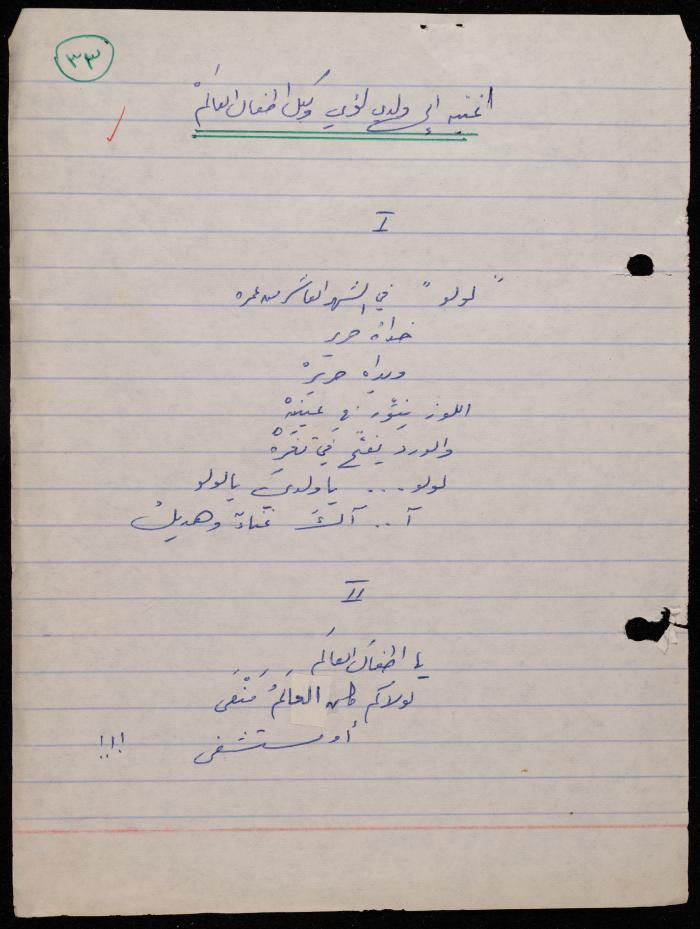 ٣٣
اغنية إلى ولدي لؤي وكل اطفال العالمْ
I
"لولو" في الشهر العاشر من عمره
خداهُ حرير
ويداه حريرْ
اللوز ينوّر في عينيهْ
والورد يفتّح في ثغرهْ
لولو... يا ولدي يا لولو
آ.. آلك غناءٌ وهديلْ
II
يا اطفال العالم
لولاكم كان العالمُ مَنْفى
أو مستشفى !!!